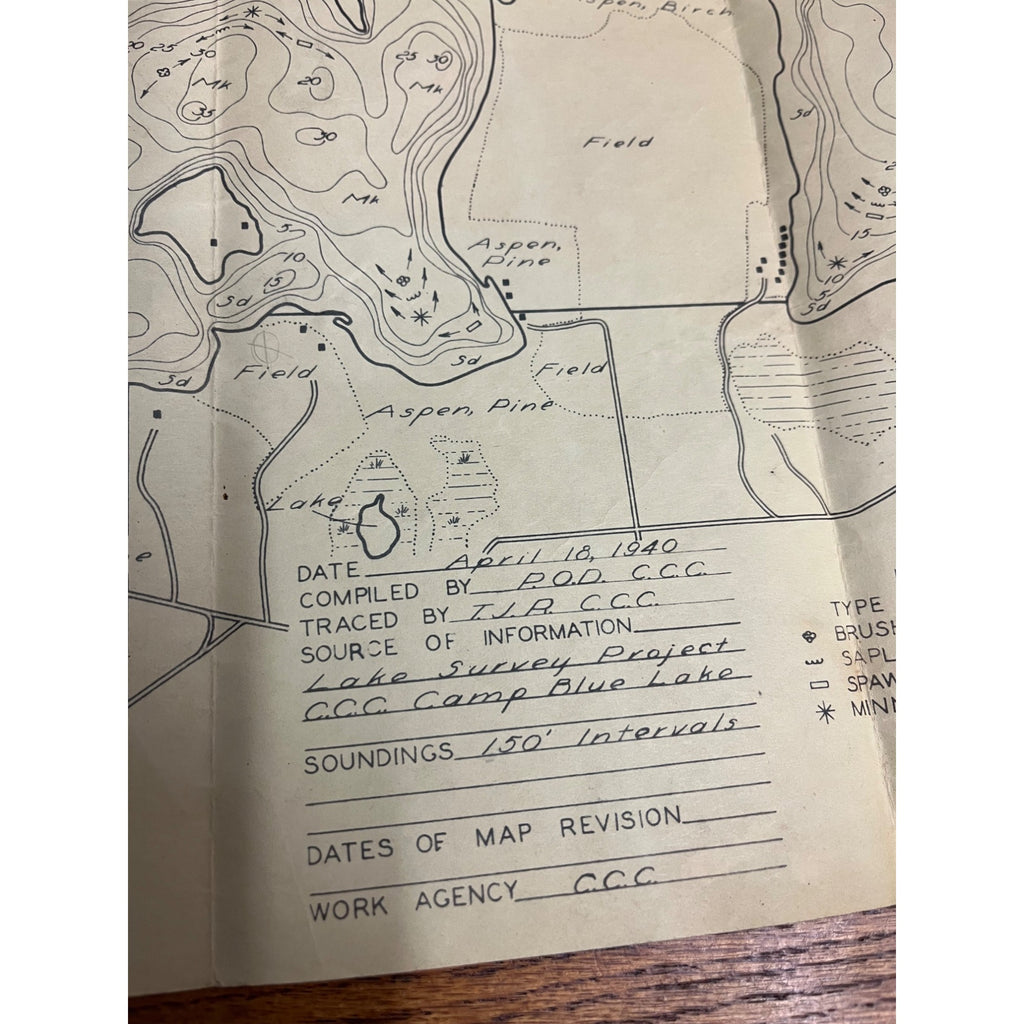 Aspen, Birch
20 25 30
25 30
Mk
20
Mk
35
Sd
30
Field
Mk
5
15
Aspen,
Pine
10
15
10
Sd
5
Sd
Sd
Sd
Field
Field
Aspen, Pine
Lake
DATE April 18, 1940
COMPILED BY P.O.D. C.C.C.
TRACED BY T.J.R. C.C.C.
SOURCE OF INFORMATION
Lake Survey Project
C.C.C. Camp Blue Lake
SOUNDINGS 150' Intervals
DATES OF MAP REVISION
WORK AGENCY C.C.C.
TYPE
BRUSH
SAPL
SPAW
MINN